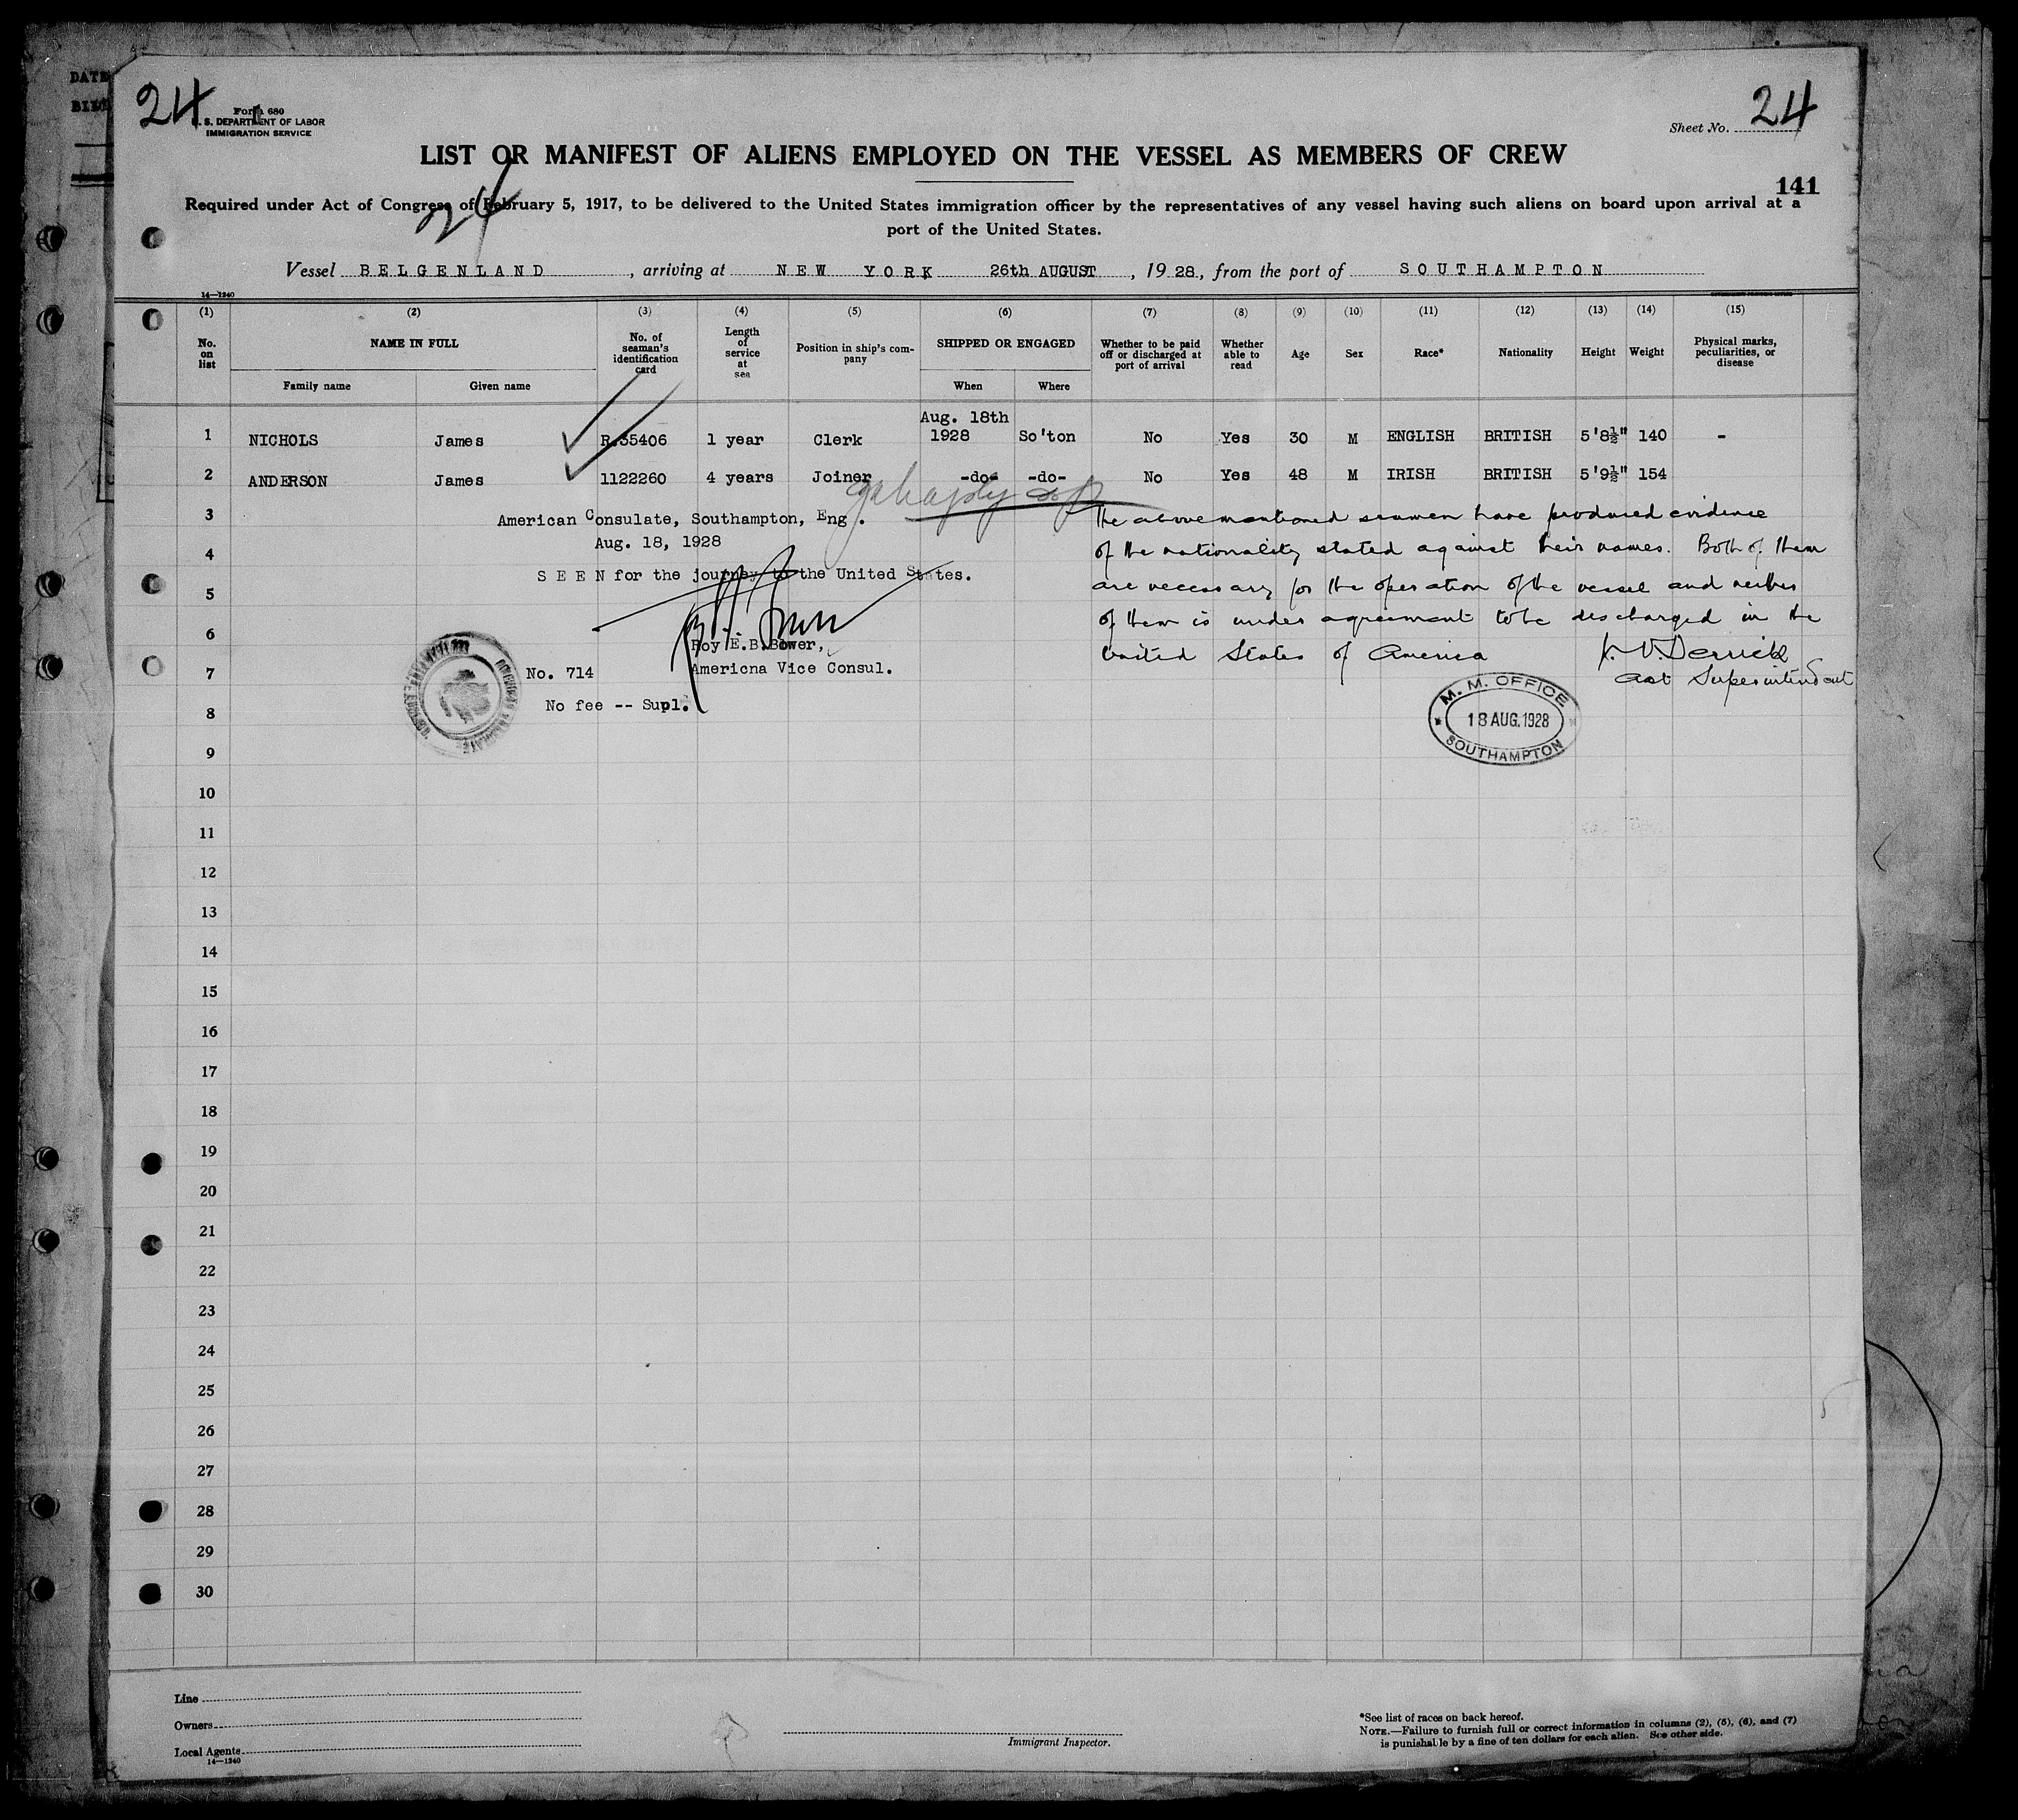 DATE
24
Form 680
S. DEPARTMENT OF LABOR
IMMIGRATION SERVICE
Sheet No. 24
LIST OR MANIFEST OF ALIENS EMPLOYED ON THE VESSEL AS MEMBERS OF CREW
141
Required under Act of Congress of February 5, 1917, to be delivered to the United States immigration officer by the representatives of any vessel having such aliens on board upon arrival at a
port of the United States.
24
Vessel BELGENLAND, arriving at NEW YORK 26th AUGUST, 1928, from the port of SOUTHAMPTON
14—1240
(1) (2) (3) (4) (5) (6) (7) (8) (9) (10) (11) (12) (13) (14) (15)
No. on list NAME IN FULL No. of seaman's identification card Length of service at sea Position in ship's company SHIPPED OR ENGAGED Whether to be paid off or discharged at port of arrival Whether able to read Age Sex Race* Nationality Height Weight Physical marks, peculiarities, or disease
Family name Given name When Where
1 NICHOLS James R.35406 1 year Clerk Aug. 18th 1928 So'ton No Yes 30 M ENGLISH BRITISH 5'8½" 140 -
2 ANDERSON James 1122260 4 years Joiner -do- -do- No Yes 48 M IRISH BRITISH 5'9½" 154
3 American Consulate, Southampton, Eng.
Aug. 18, 1928
4
SEEN for the journey to the United States.
5
6 Roy E.B.Bower,
Americna Vice Consul.
7 No. 714
No fee -- Supl.
8
The above mentioned seamen have produced evidence
of the nationality stated against their names. Both of them
are necessary for the operation of the vessel and neither
of them is under agreement to be discharged in the
United States of America
V. Derrick
Act Superintendent
M. M. OFFICE
18 AUG. 1928
SOUTHAMPTON
9
10
11
12
13
14
15
16
17
18
19
20
21
22
23
24
25
26
27
28
29
30
Line
Owners
Local Agents
14—1240
Immigrant Inspector.
*See list of races on back hereof.
NOTE.—Failure to furnish full or correct information in columns (2), (5), (6), and (7)
is punishable by a fine of ten dollars for each alien. See other side.